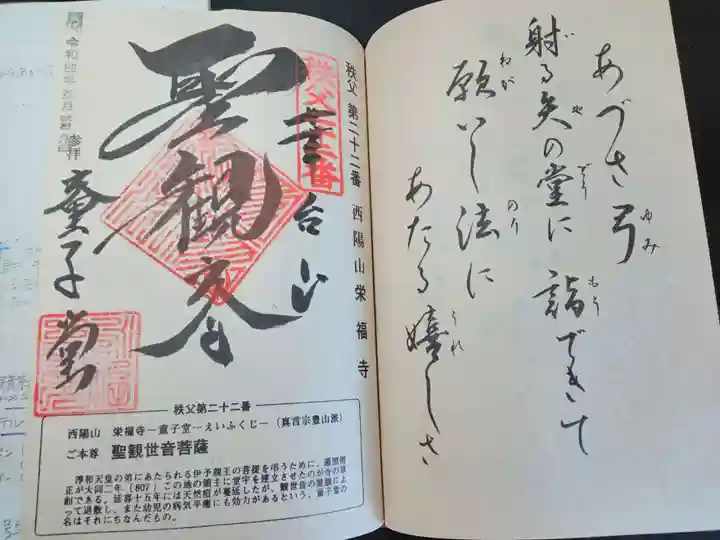 あづさ弓
ゆみ
射る矢の堂に詣できて
い
や
どう
もう
願いし法に
わが
のり
あたる嬉しさ
うれ
秩父 第二十二番 西陽山栄福寺
秩父二十二番
華台山
聖観音
童子堂
参拝
秩父第二十二番
西陽山 栄福寺―童子堂―えいふくじ―(真言宗豊山派)
ご本尊 聖観世音菩薩
淳和天皇の弟にあたられる伊予親王の菩提を弔うために、遍照僧
正が大同二年(807)この地の領主に堂宇を建立させたのが寺の草
創である。延喜十五年には天然痘が蔓延したが、観世音の霊験によ
って退散し、また幼児の病気平癒にも効力があるという、童子堂の
名はそれにちなんだもの。